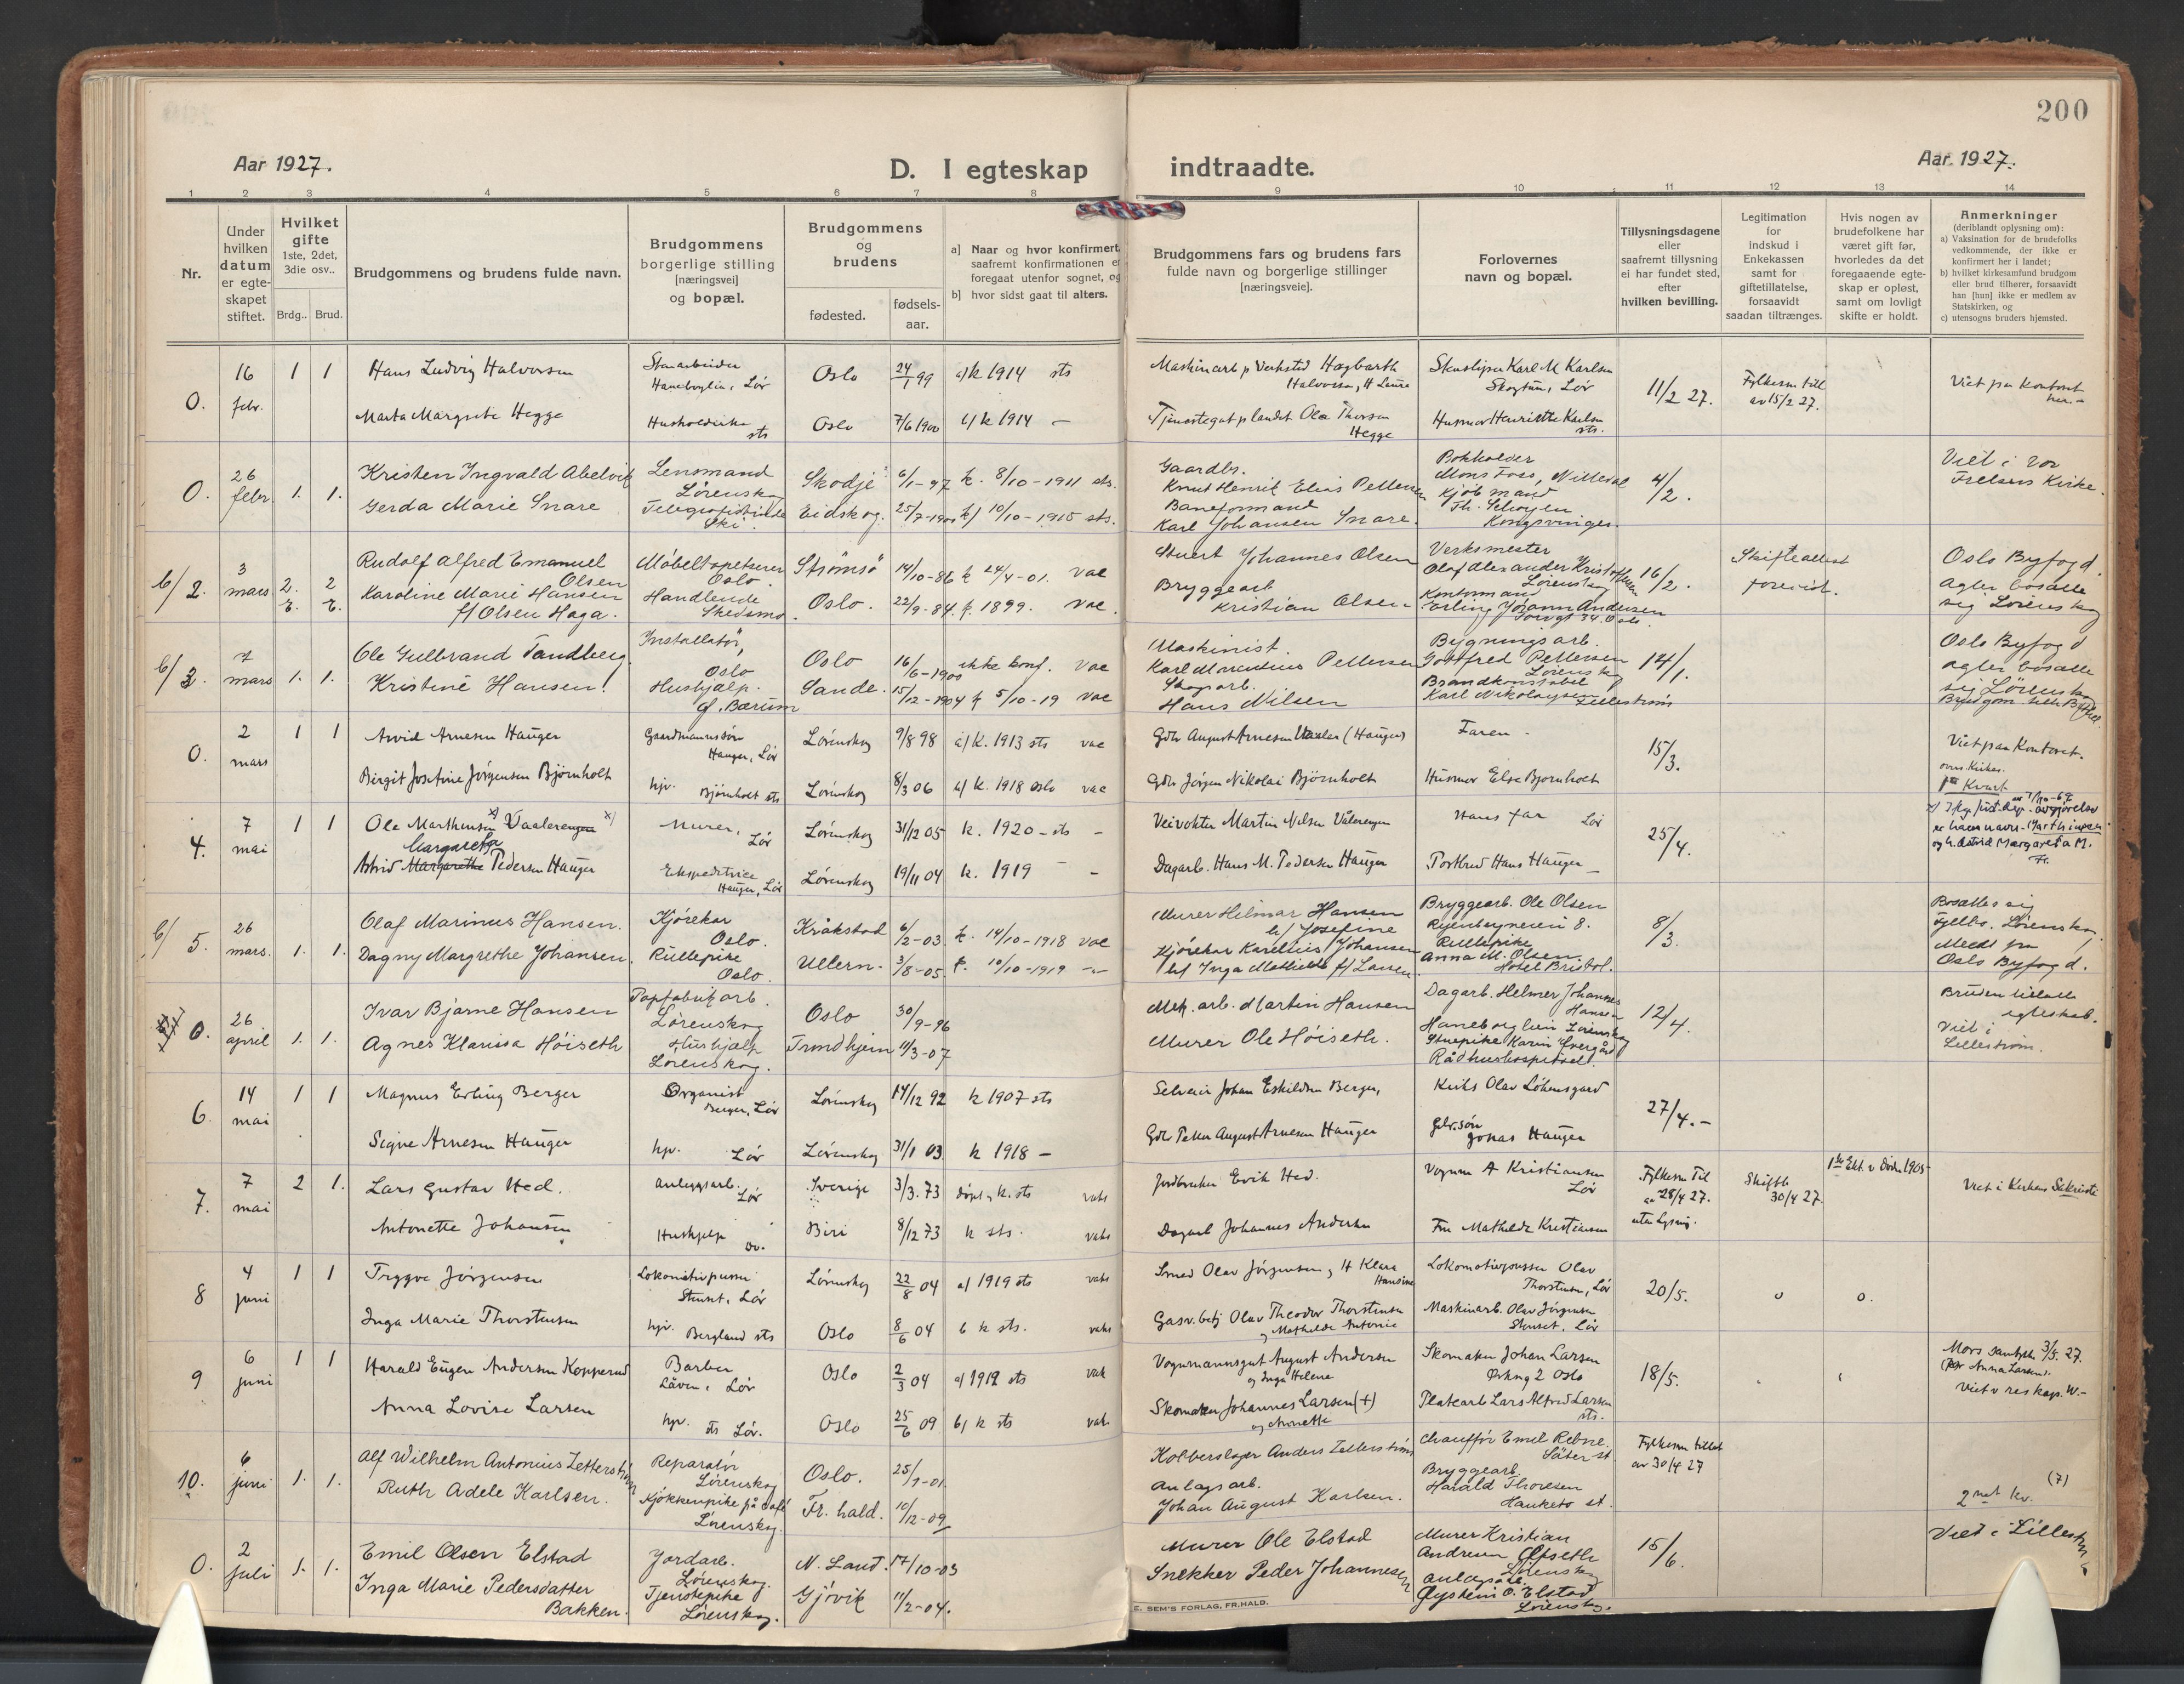 200
Aar 1927.
D. I egteskap indtraadte.
Aar 1927.
1 2 3 4 5 6 7 8 9 10 11 12 13 14
Nr.
Under hvilken datum er egteskapet stiftet.
Hvilket gifte 1ste, 2det, 3die osv..
Brdg.. Brud.
Brudgommens og brudens fulde navn.
Brudgommens borgerlige stilling [næringsvei] og bopæl.
Brudgommens og brudens
fødested.
fødsels-aar.
a] Naar og hvor konfirmert, saafremt konfirmationen er foregaat utenfor sognet, og
b] hvor sidst gaat til alters.
Brudgommens fars og brudens fars fulde navn og borgerlige stillinger [næringsveie].
Forlovernes navn og bopæl.
Tillysningsdagene eller saafremt tillysning ei har fundet sted, efter hvilken bevilling.
Legitimation for indskud i Enkekassen samt for giftetillatelse, forsaavidt saadan tiltrænges.
Hvis nogen av brudefolkene har været gift før, hvorledes da det foregaaende egteskap er opløst, samt om lovligt skifte er holdt.
Anmerkninger (deriblandt oplysning om):
a) Vaksination for de brudefolks vedkommende, der ikke er konfirmert her i landet;
b) hvilket kirkesamfund brudgom eller brud tilhører, forsaavidt han [hun] ikke er medlem av Statskirken, og
c) utensogns bruders hjemsted.
0. 16 febr. 1 1 Hans Ludvig Halvorsen Lør Oslo 24/1 99 a) k 1914 sts Halvorsen Karl M Karlsen Lør 11/2 27. av 15/2 27. Viet paa Kontoret her.-
Marta Margrete Hegge sts Oslo 7/6 1900 b) k 1914 - Ola Thorsen Hegge Husmor Henriette Karlsen sts.
0. 26 febr. 1. 1. Kristen Ingvald Abelvik Lensmand Lørenskog Skodje 6/1-97 k. 8/10-1911 sts. Gaardbr. Knut Henrik Elias Pettersen Bokholder Mons Foss, Nittedal 4/2. Viet i Vor Frelsers Kirke.
Gerda Marie Snare Telegrafistinde Ski Eidskog. 25/7-1900 k) 10/10-1915 sts. Baneformand Karl Johansen Snare. Kjøbmand Th. Kongsvinger.
b/2. 3 mars 2. 2 Rudolf Alfred Emanuel Olsen Møbeltapetserer Oslo. Strømsø 14/10-86 k 24/4-01. vac Stuert Johannes Olsen Verksmester Olaf Alexander Kristoffersen Lørenskog 16/2. Skifteattest forevist. Oslo Byfogd. agter bosætte sig Lørenskog
Karoline Marie Hansen f/ Olsen Haga. Handlende Skedsmo. Oslo. 22/9-84 k. 1899. vac. Bryggearb Kristian Olsen Kontormand Erling Johann Andersen
b/3. 7 mars 1. 1. Ole Gulbrand Tandberg. Installatør, Oslo Oslo 16/6-1900 ikke konf. vac Maskinist. Karl Marentius Pettersen Bygningsarb. Gottfred Pettersen Lørenskog 14/1. Oslo Byfogd agter bosætte sig Lørenskog
Kristine Hansen. Hushjælp. Bærum Sande. 15/12-1904 k 5/10-19 vac Skogsarb. Hans Nilsen Brandkonstabel Karl Nikolaysen Lillestrøm
0. 2 mars 1 1 Arvid Arnesen Hauger Gaardmannssøn Hauger, Lør Lørenskog 9/8 98 a) k. 1913 sts vac Gdbr August Arnesen (Hauger) Faren - 15/3. Viet paa Kontoret.
Birgit Josefine Jørgensen Bjørnholt hjv. Bjørnholt sts Lørenskog 8/3 06 b) k. 1918 Oslo vac Gdbr Jørgen Nikolai Bjørnholt Husmor Else Bjørnholt
4. 7 mai 1 1 Ole Marthinsen x) Vaalerengen x) Murer, Lør Lørenskog 31/12 05 k. 1920 - sts - Veivokter Martin Nilsen Vålerengen Hans far Lør 25/4. Marthinsen
Margareta
Astrid Margarethe Pedersen Hauger Ekspeditrice Hauger, Lør Lørenskog 19/11 04 k. 1919 - Dagarb. Hans M. Pedersen Hauger Hans Hauger
b/5. 26 mars. 1. 1. Olaf Marinus Hansen. Kjørekar Oslo. Kråkstad 6/2-03 k. 14/10-1918 vac Murer Helmar Hansen h/ Josefine Bryggearb. Ole Olsen 8. 8/3. Bosættes sig Lørenskog. Medt fra Oslo Byfogd.
Dagny Margrethe Johansen. Rullepike Oslo. Ullern. 3/8-05. k. 10/10-1919 Kjørekar Karelius Johansen h/ Inga Mathilde f/ Larsen Rullepike Anna M. Olsen. Hotel Bristol.
0. 26 april 1. 1. Ivar Bjarne Hansen Papfabrikarb. Lørenskog Oslo 30/9-96 Mek. arb. Martin Hansen Dagarb. Helmer Johannes Hansen Haneborglien Lørenskog 12/4. Bruden egteskab. Viet i Lillestrøm.
Agnes Klarissa Høiseth Hushjælp Lørenskog. Trondhjem 11/3-07 Murer Ole Høiseth. Stuepike Karin Rådhushospitset.
6. 14 mai 1 1 Magnus Erling Berger Organist Berger, Lør Lørenskog 14/12 92 k 1907 sts Selveier Johan Eskildsen Berger, Olav Løkensgard 27/4.-
Signe Arnesen Hauger hjv. Lør Lørenskog 31/1 03 k 1918 - Gdbr Petter August Arnesen Hauger Gdbr.søn Jonas Hauger
7. 7 mai 2 1. Lars Gustav Hed. Anleggsarb. Lør Sverige 3/3. 73 døpt og k. sts vaks Jordbruker Erik Hed. Vognm A Kristiansen Lør Fylkesm Til av 28/4 27. uten lysning. Skifteb 30/4 27. 1ste Ekt. v død 1905 Viet i Kirkens Sakristi
Antonette Johansen Hushjelp Do. Biri 8/12 73 k sts. vaks Dagarb Johannes Andersen Fru Mathilde Kristiansen
8 4 juni 1 1 Trygve Jørgensen Lokomotivpusser Stenset, Lør Lørenskog 22/8 04 a) 1919 sts vaks Smed Olav Jørgensen og H Klara Hansine Lokomotivpusser Olav Thorstensen, Lør 20/5. 0 0.
Inga Marie Thorstensen hjv. Bergland sts Oslo 8/6 04 b k sts. vaks Gasv. betj Olav Theodor Thorstensen og Mathilde Antonie Maskinarb. Olav Jørgensen Stenset, Lør
9 6 juni 1 1 Harald Eugen Andersen Kopperud Barber Låven, Lør Oslo 2/3 04 a) 1919 sts vak Vognmannsgut August Andersen og Inga Helene Skomaker Johan Larsen Oslo 18/5. Mors samtykke 3/5. 27. Anna Larsen.
Anna Lovise Larsen hjv. sts Lør. Oslo 25/6 09 b) k sts vak. Skomaker Johannes Larsen (+) Platearb Lars Alfred Larsen sts.
10. 6 juni 1. 1. Alf Wilhelm Antonius Zetterstrøm Reparatør Lørenskog Oslo. 25/7-01. Kobberslager Anders Zetterstrøm Chauffør Emil Rebne. Säter st. Fylkesm tillat av 30/4 27
Ruth Adele Karlsen. Kjøkkenpike på café Lørenskog. Fr. hald. 10/12-09 Anlægsarb. Johan August Karlsen. Bryggearb. Harald Thoresen Hauketo st. 2net kv. (7)
0. 2 juli 1. 1. Emil Olsen Elstad Jordarb. Lørenskog. N. Land. 17/10-03 Murer Ole Elstad Murer Kristian Andresen Lørenskog 15/6. Viet i Lillestrøm
Inga Marie Pedersdatter Bakken. Tjenestepike Lørenskog. Gjøvik 11/2-04. Snekker Peder Johannesen Anlægsarb. Øystein O. Elstad Lørenskog.
E. SEM'S FORLAG, FR.HALD.